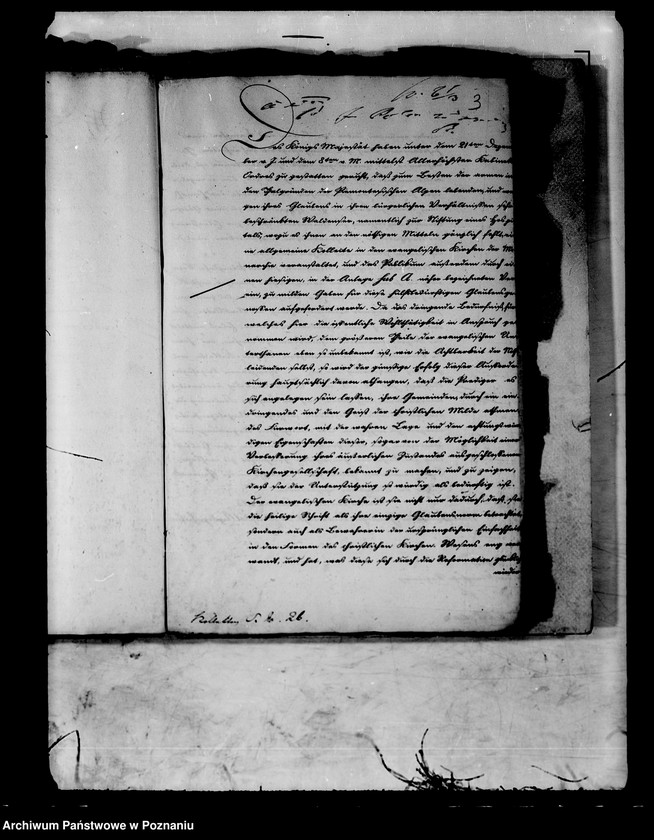 3
Des Königs Majestät haben unter dem 21ten Dezem
ber v. J. und dem 8ten v. M. mittelst Allerhöchsten Kabinets
Orders zu gestatten geruht, daß zum Besten der armen in
den Thalgründen der Piemontesischen Alpen lebenden, und we
gen ihres Glaubens in ihren bürgerlichen Verhältnissen sehr
beschränkten Waldenser, namentlich zur Stiftung eines Hospi
tals, wozu es ihnen an den nöthigen Mitteln gänzlich fehlt, ei
ne allgemeine Kollecte in den evangelischen Kirchen der Mo
narchie veranstaltet, und das Publikum außerdem durch ei
nen hiesigen, in der Anlage sub A. näher bezeichneten Ver
ein, zu milden Gaben für diese hülfsbedürftigen Glaubensge
nossen aufgefordert werde. Da das dringende Bedürfniß, für
welches hier die öffentliche Wohlthätigkeit in Anspruch ge
nommen wird, dem größeren Theile der evangelischen Un
terthanen eben so unbekannt ist, wie die Achtbarkeit der Noth
leidenden selbst, so wird der günstige Erfolg dieser Aufforde
rung hauptsächlich davon abhangen, daß die Prediger es
sich angelegen sein lassen, ihre Gemeinden, durch ein ein
dringendes und den Geist der christlichen Milde athmen
des Fürwort, mit der wahren Lage und den achtungswür
digen Eigenschaften dieser, sogar von der Möglichkeit einer
Verbesserung ihres äußerlichen Zustandes ausgeschlossenen
Kirchengesellschaft, bekannt zu machen, und zu zeigen,
daß sie der Unterstützung so würdig als bedürftig ist.
Der evangelischen Kirche ist sie nicht nur dadurch, daß sie
die heilige Schrift als ihre einzige Glaubensnorm betrachtet,
sondern auch als Bewahrerin der ursprünglichen Einfachheit
in den Formen des christlichen Kirchen Wesens eng ver
wandt, und hat, was diese sich durch die Reformation
wieder
Kollekten S. N. 26.
Archiwum Państwowe w Poznaniu